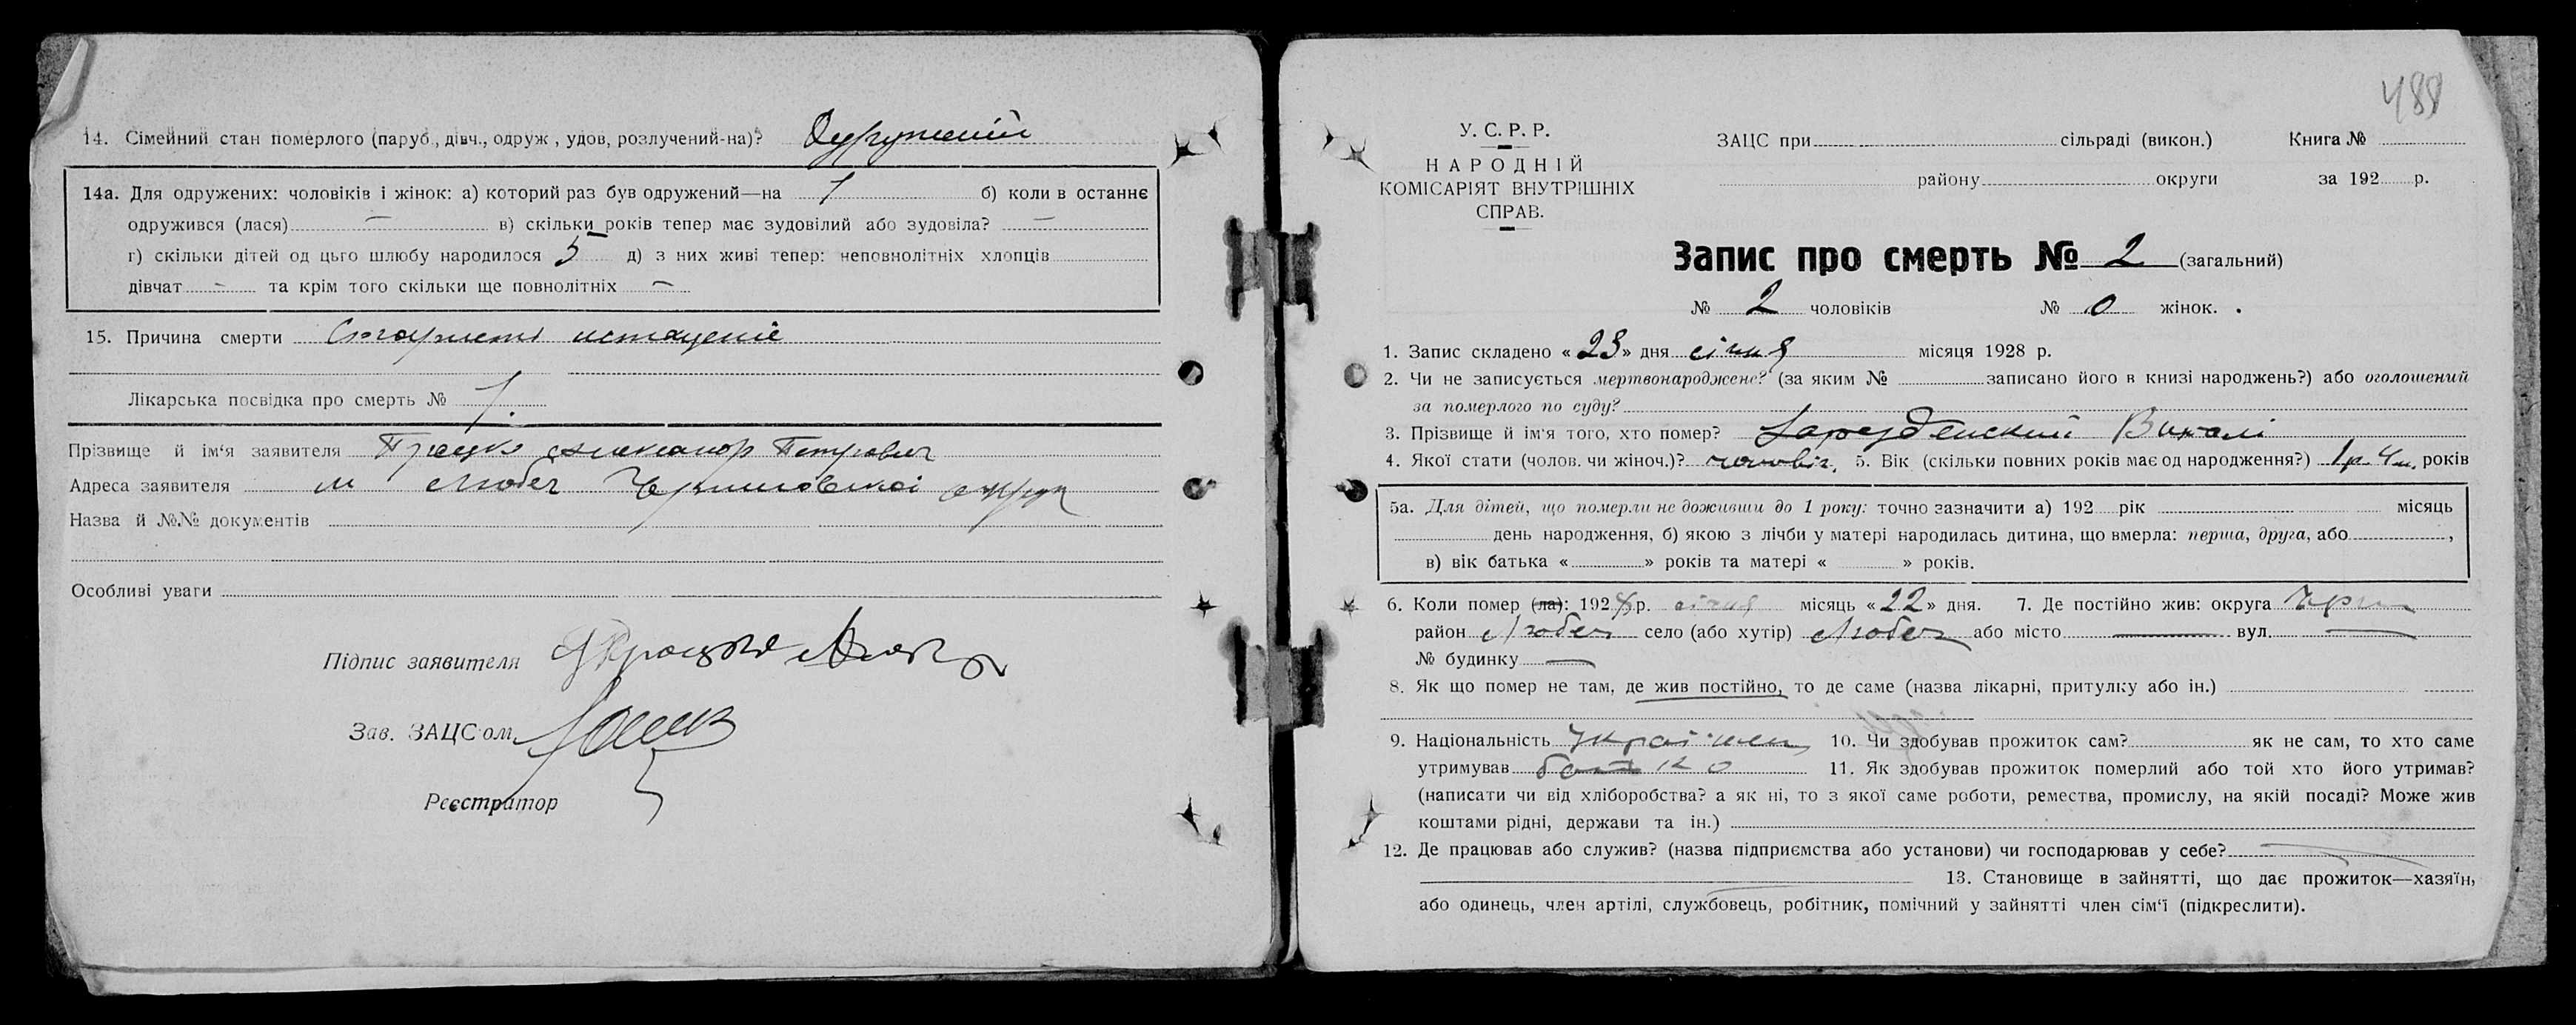 14. Сімейний стан померлого (паруб., дівч., одруж , удов, розлучений-на)? Одружений
14а. Для одружених: чоловіків і жінок: а) которий раз був одружений—на 1 б) коли в останнє
одружився (лася) — в) скільки років тепер має зудовілий або зудовіла? —
г) скільки дітей од цього шлюбу народилося 5 д) з них живі тепер: неповнолітніх хлопців
дівчат - та крім того скільки ще повнолітніх —
15. Причина смерти
Лікарська посвідка про смерть № 7.
Прізвище й ім‘я заявителя Александр Петрович
Адреса заявителя м Любеч Чернигівської округи
Назва й №№ документів
Особливі уваги
Підпис заявителя
Зав. ЗАЦС‘ом
Реєстратор
488
У. С. Р. Р.
НАРОДНІЙ
КОМІСАРІЯТ ВНУТРІШНІХ
СПРАВ.
ЗАЦС при сільраді (викон.) Книга №
району округи за 192 р.
Запис про смерть № 2 (загальний)
№ 2 чоловіків № 0 жінок.
1. Запис складено « 23 » дня січня місяця 1928 р.
2. Чи не записується мертвонароджене? (за яким № записано його в книзі народжень?) або оголошений
за померлого по суду?
3. Прізвище й ім‘я того, хто помер? Віталі
4. Якої стати (чолов. чи жіноч.)? чоловіч. 5. Вік (скільки повних років має од народження?) 1 р 4 м. років
5а. Для дітей, що померли не доживши до 1 року: точно зазначити а) 192 рік місяць
день народження, б) якою з лічби у матері народилась дитина, що вмерла: перша, друга, або ,
в) вік батька « » років та матері « » років.
6. Коли помер (ла): 1928 р. січня місяць « 22 » дня. 7. Де постійно жив: округа Черн
район Любеч село (або хутір) Любеч або місто — вул. —
№ будинку —
8. Як що помер не там, де жив постійно, то де саме (назва лікарні, притулку або ін.)
9. Національність Українец 10. Чи здобував прожиток сам? як не сам, то хто саме
утримував батько 11. Як здобував прожиток померлий або той хто його утримав?
(написати чи від хліборобства? а як ні, то з якої саме роботи, ремества, промислу, на якій посаді? Може жив
коштами рідні, держави та ін.)
12. Де працював або служив? (назва підприємства або установи) чи господарював у себе?
13. Становище в зайнятті, що дає прожиток—хазяїн,
або одинець, член артілі, службовець, робітник, помічний у зайнятті член сім‘ї (підкреслити).